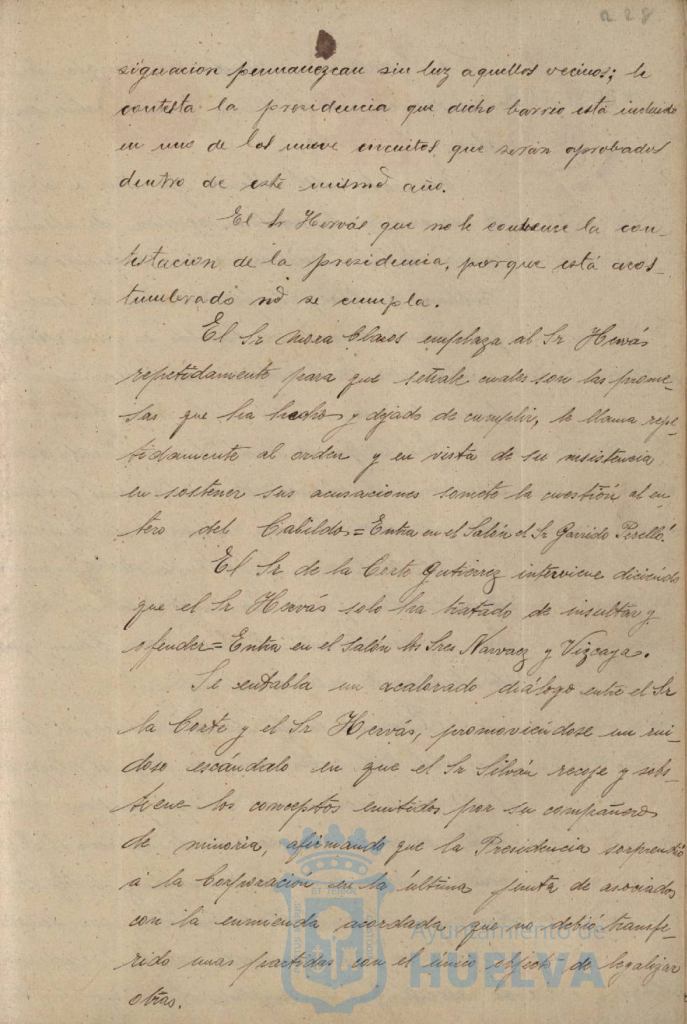 228
signacion permanezcan sin luz aquellos vecinos; le
contesta la presidencia que dicho barrio está incluido
en uno de los nueve circuitos que serán aprobados
dentro de este mismo año.
El Sr Hervás que no le convence la con-
testacion de la presidencia, porque está acos-
tumbrado no se cumpla.
El Sr Mora Claros emplaza al Sr Hervás
repetidamente para que señale cuales son las prome-
sas que ha hecho y dejado de cumplir, le llama repe-
tidamente al orden y en vista de su insistencia
en sostener sus acusaciones somete la cuestión al en-
tero del Cabildo = Entra en el Salón el Sr Garrido Perelló.
El Sr de la Corte Gutierrez interviene diciendo
que el Sr Hervás solo ha tratado de insultar y
ofender = Entra en el Salón los Sres Narvaez y Vizcaya.
Se entabla un acalorado diálogo entre el Sr
la Corte y el Sr Hervás, promoviendose un rui-
doso escándalo en que el Sr Silván recoje y sobs-
tiene los conceptos emitidos por su compañero
de minoria, afirmando que la Presidencia sorprendió
á la Corporación en la última junta de asociados
con la enmienda acordada que no debió transfe-
rido unas partidas con el único objeto de legalizar
otras.
Ayuntamiento de
HUELVA